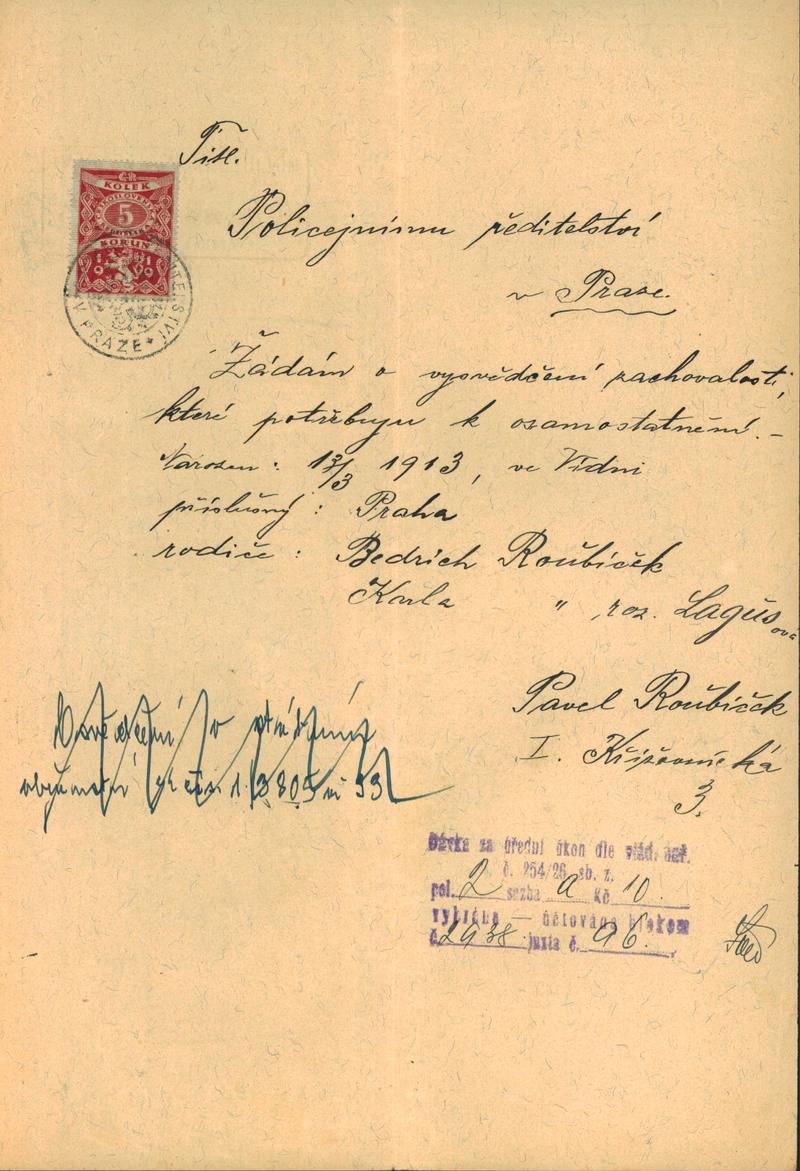 Titl.
KOLEK
5
KORUN
1919
V PRAZE
Policejnímu ředitelství
v Praze.
Žádám o vysvědčení zachovalosti,
které potřebuju k osamostatnění. –
Narozen : 13/3 1913, ve Vídni
příslušný : Praha
rodiče : Bedrich Roubíček
Karla " roz. Lagusová
Pavel Roubíček
I. Křižovnická
3.
Osvědčení o státním
Dávka za úřední úkon dle vlád. nař.
č. 254/26 sb. z.
pol. 2 sazba a Kč 10
vybrána — účtována blokem
č. 2938 juxta č. 96.